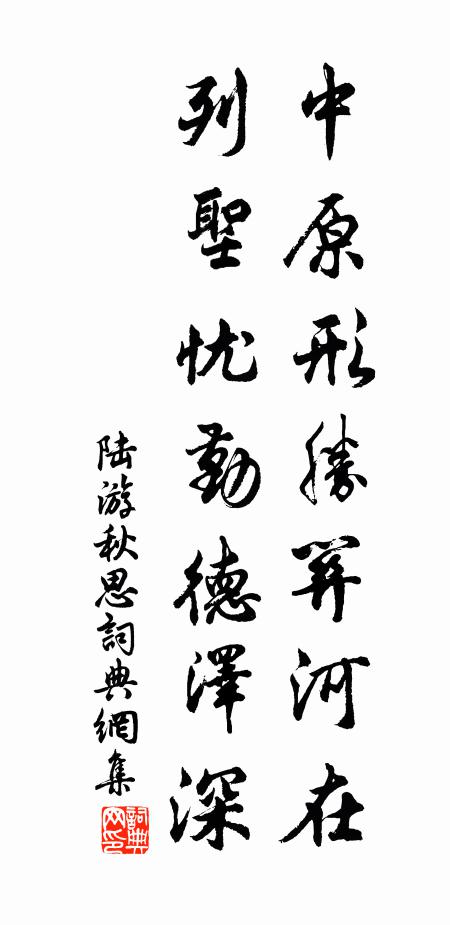 中原形勝關河在
列聖忧勤德澤深
陆游秋思詞典網集
詞典
网印